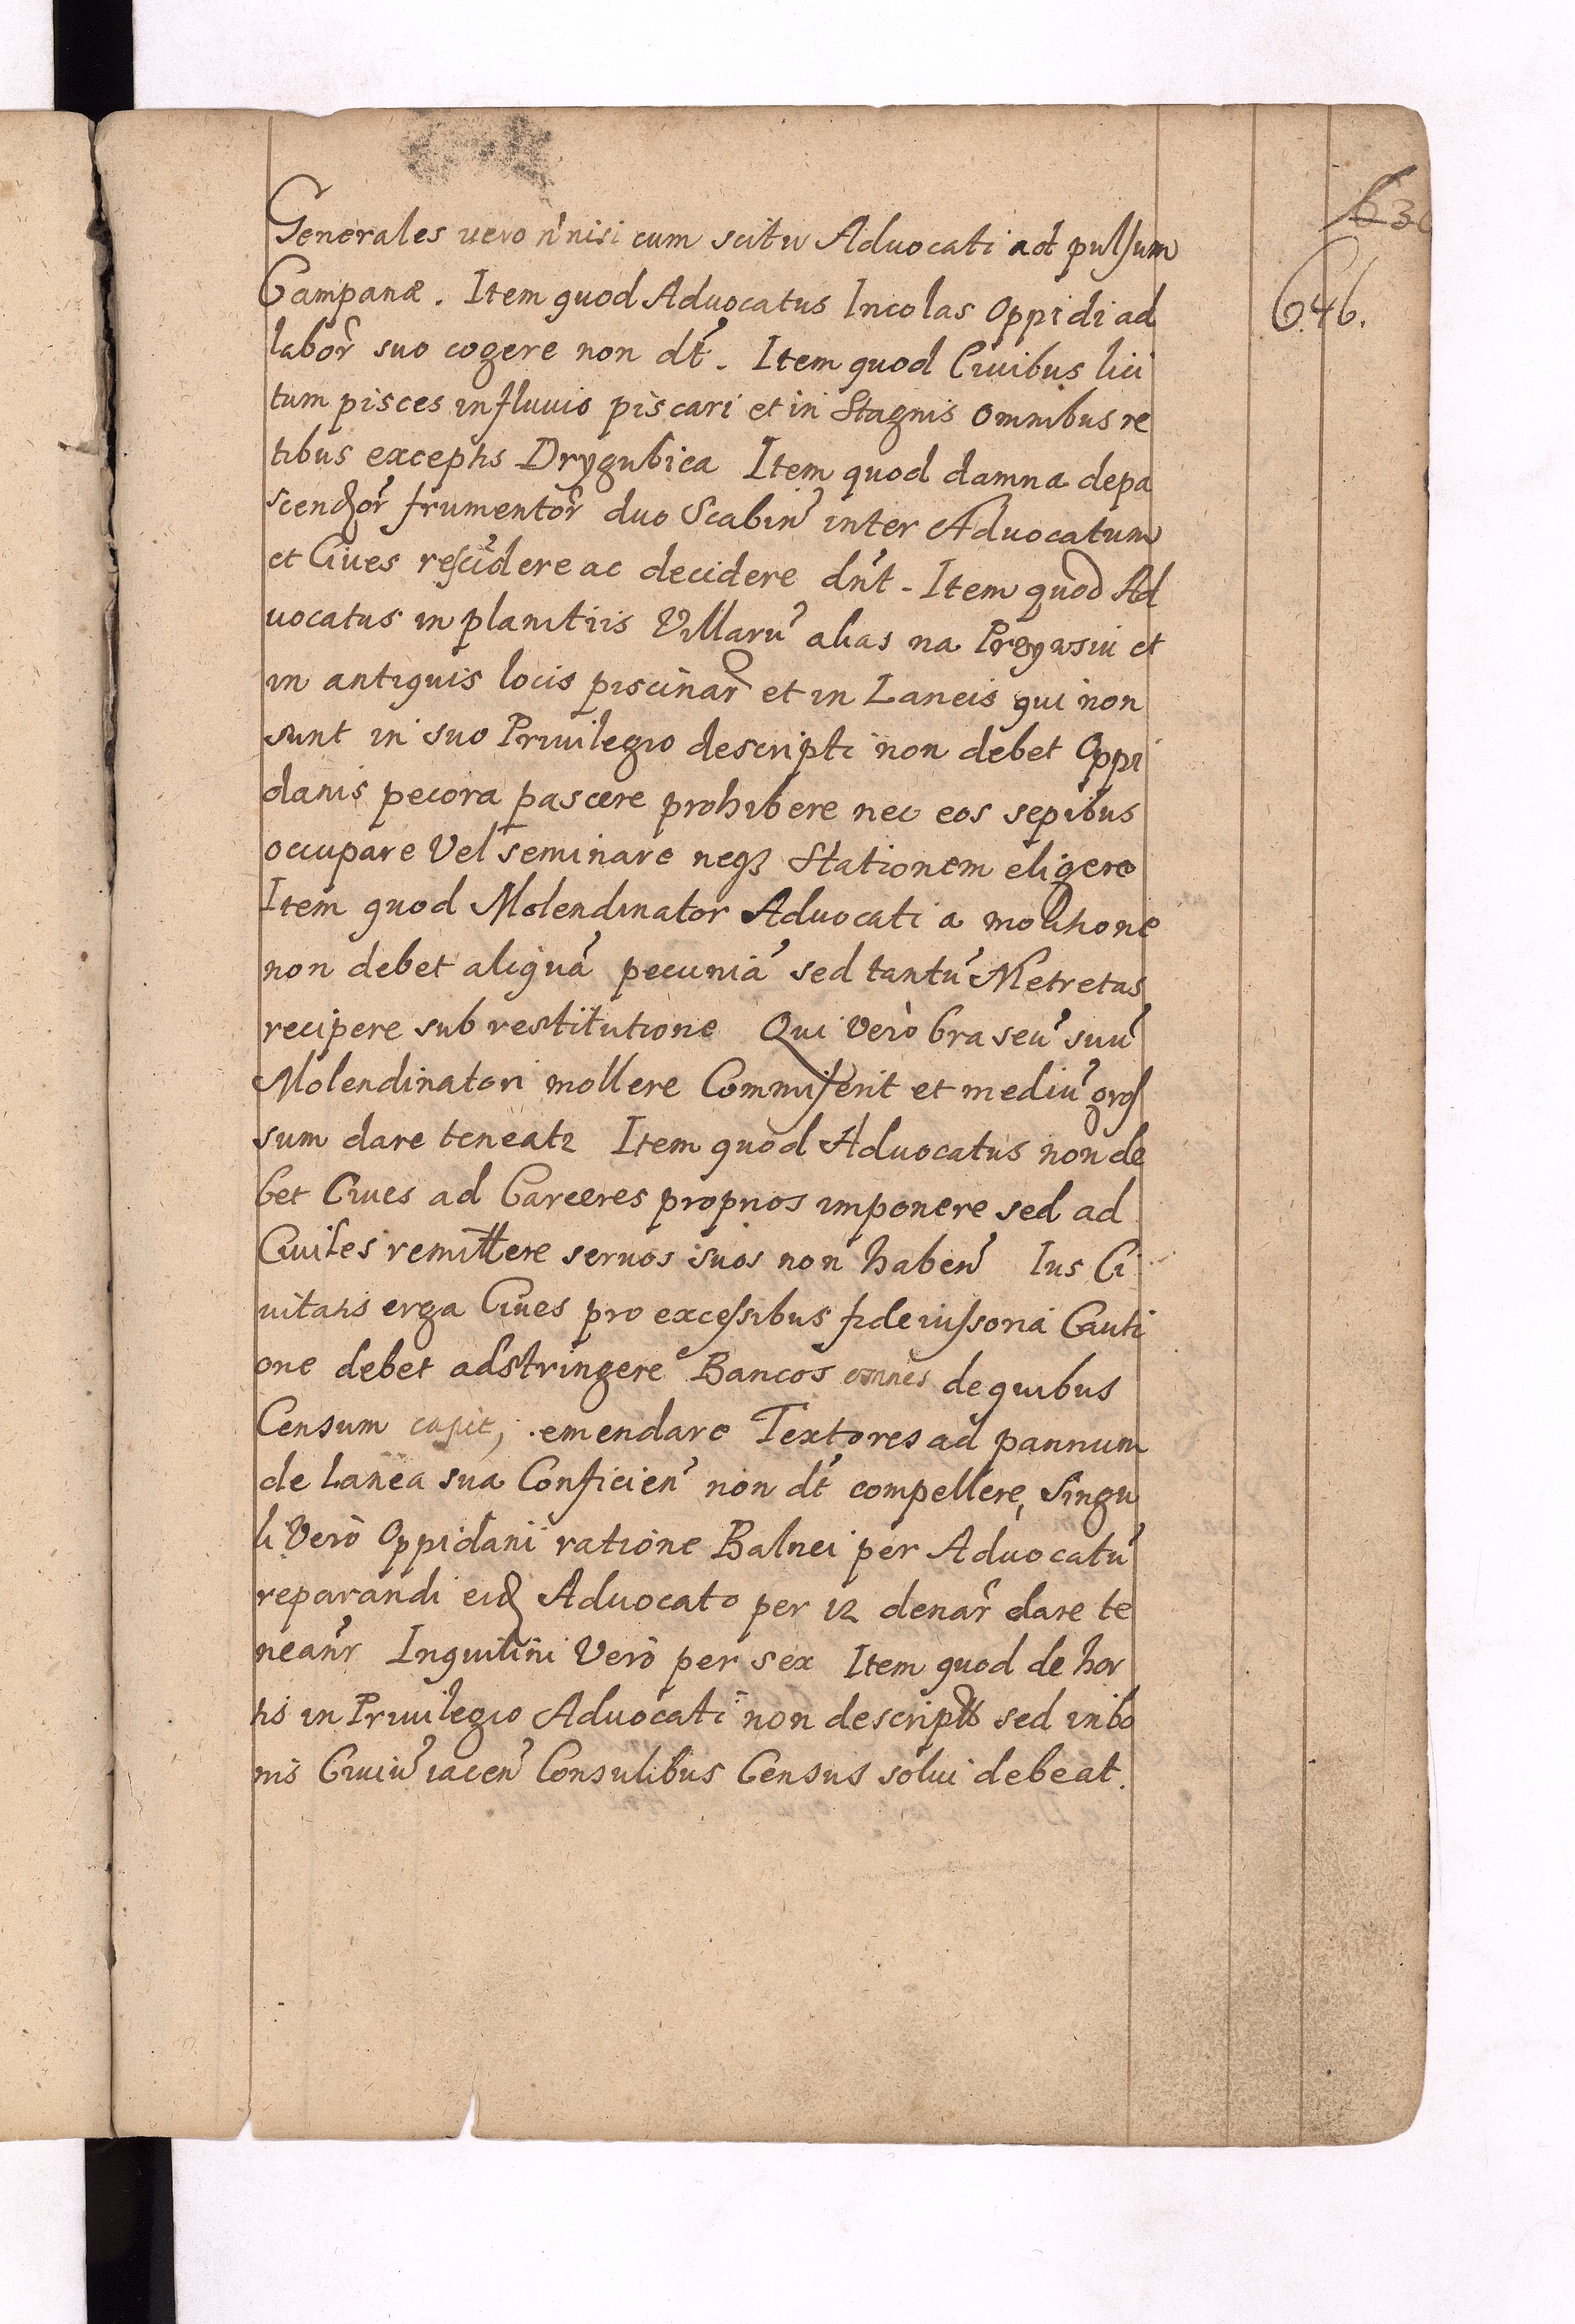 630
646.
Generales uero n̄ nisi cum scitu Aduocati ad pulsum
Campanæ. Item quod Aduocatus Incolas Oppidi ad
labor̃ suo cogere non dt̃. Item quod Ciuibus lici
tum pisces in fluuio piscari et in Stagnis omnibus re
tibus exceptis Drygubica Item quod damna depa
scendor̃ frumentor̃ duo Scabin̉ inter Aduocatum
et Ciues rescid̉ere ac decidere dn̉t. Item quod Ad
uocatus in planitiis Villarū alias na et
in antiquis locis piscinar̃ et in Laneis qui non
sunt in suo Priuilegio descripti non debet Oppi
danis pecora pascere prohibere nec eos sepibus
occupare Vel seminare neqȝ Stationem eligere
Item quod Molendinator Aduocati a molitione
non debet aliquā pecuniā sed tantū Metretas
recipere sub restitutione Qui Verò braseū suū
Molendinatori mollere Commiserit et mediū gros
sum dare teneatꝛ Item quod Aduocatus non de
bet Ciues ad Carceres proprios imponere sed ad
Ciuiles remittere seruos suos non haben̉ Ius Ci
uitatis erga Ciues pro excessibus fideiussoria Cauti
one debet adstringere Bancos omnes de quibus
Censum capit, emendare Textores ad pannum
de Lanea sua Conficien̉ non dt̉ compellere, Singu
li Verò Oppidani ratione Balnei per Aduocatū
reparandi eid Aduocato per 12 denar̃ dare te
nean̉r Inquilini Verò per sex Item quod de hor
tis in Priuilegio Aduocati non descriptis sed in bo
nis Ciuiū iacen̉ Consulibus Census solui debeat.